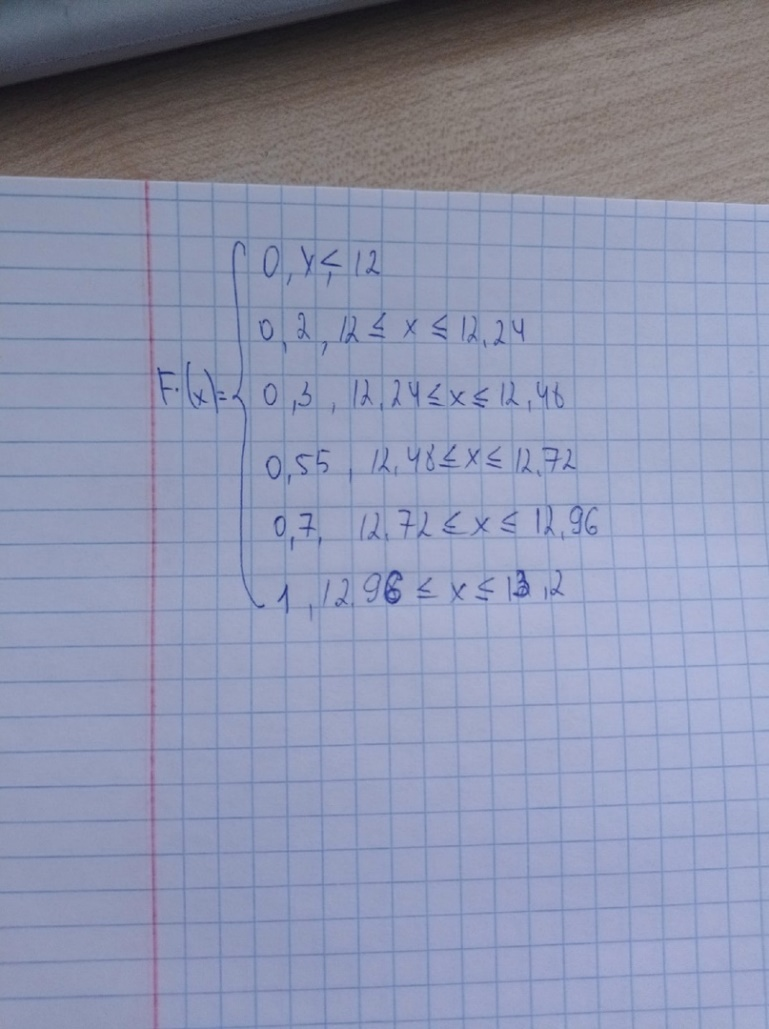 0, x ≤ 12
0,2, 12 ≤ x ≤ 12,24
F*(x)= 0,3, 12,24 ≤ x ≤ 12,48
0,55, 12,48 ≤ x ≤ 12,72
0,7, 12,72 ≤ x ≤ 12,96
1, 12,96 ≤ x ≤ 13,2